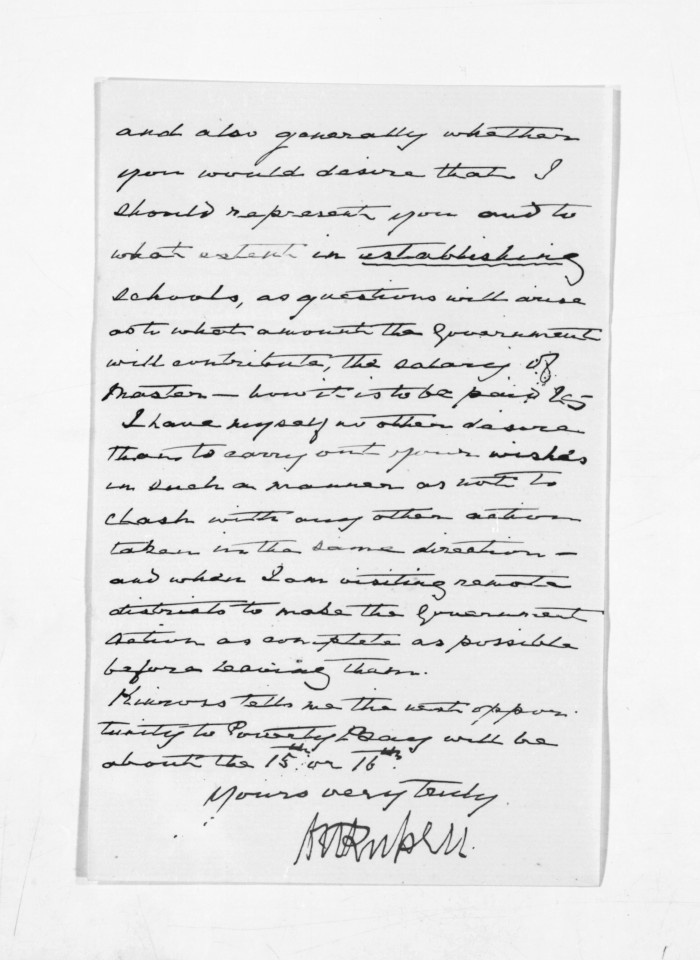 and also generally whether
you would desire that I
should represent you and to
what extent in establishing
schools, as questions will arise
as to what amount the Government
will contribute, the salary of
Master – how it is to be paid &c
I have myself no other desire
than to carry out your wishes
in such a manner as not to
clash with any other action
taken in the same direction –
and when I am visiting remote
districts to make the Government
action as complete as possible
before leaving them.
Kinross tells me the next oppor-
tunity to Poverty Bay will be
about the 15th or 16th.
Yours very truly.
H R Russell.